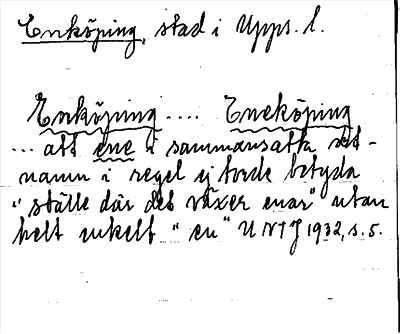 Enköping, stad i Upps. l.
Enköping .... Eneköping
... att ene i sammansatta ort-
namn i regel ej torde betyda
"ställe där det växer enar" utan
helt enkelt "en" UNTJ 1932, s. 5.